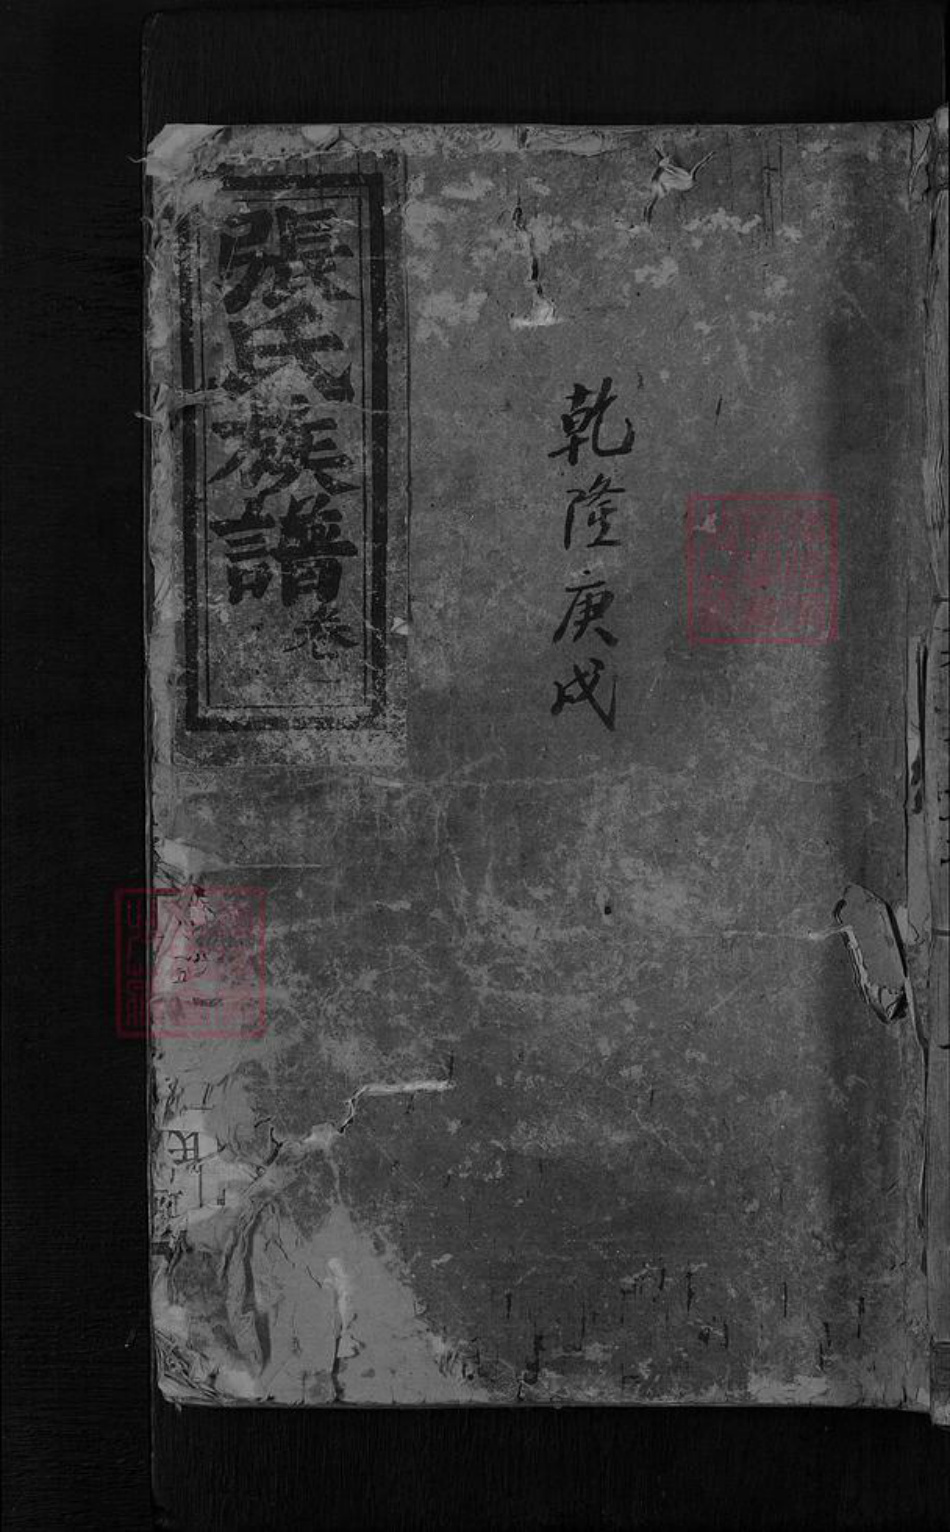 乾隆庚戌
張氏族譜卷一
氏